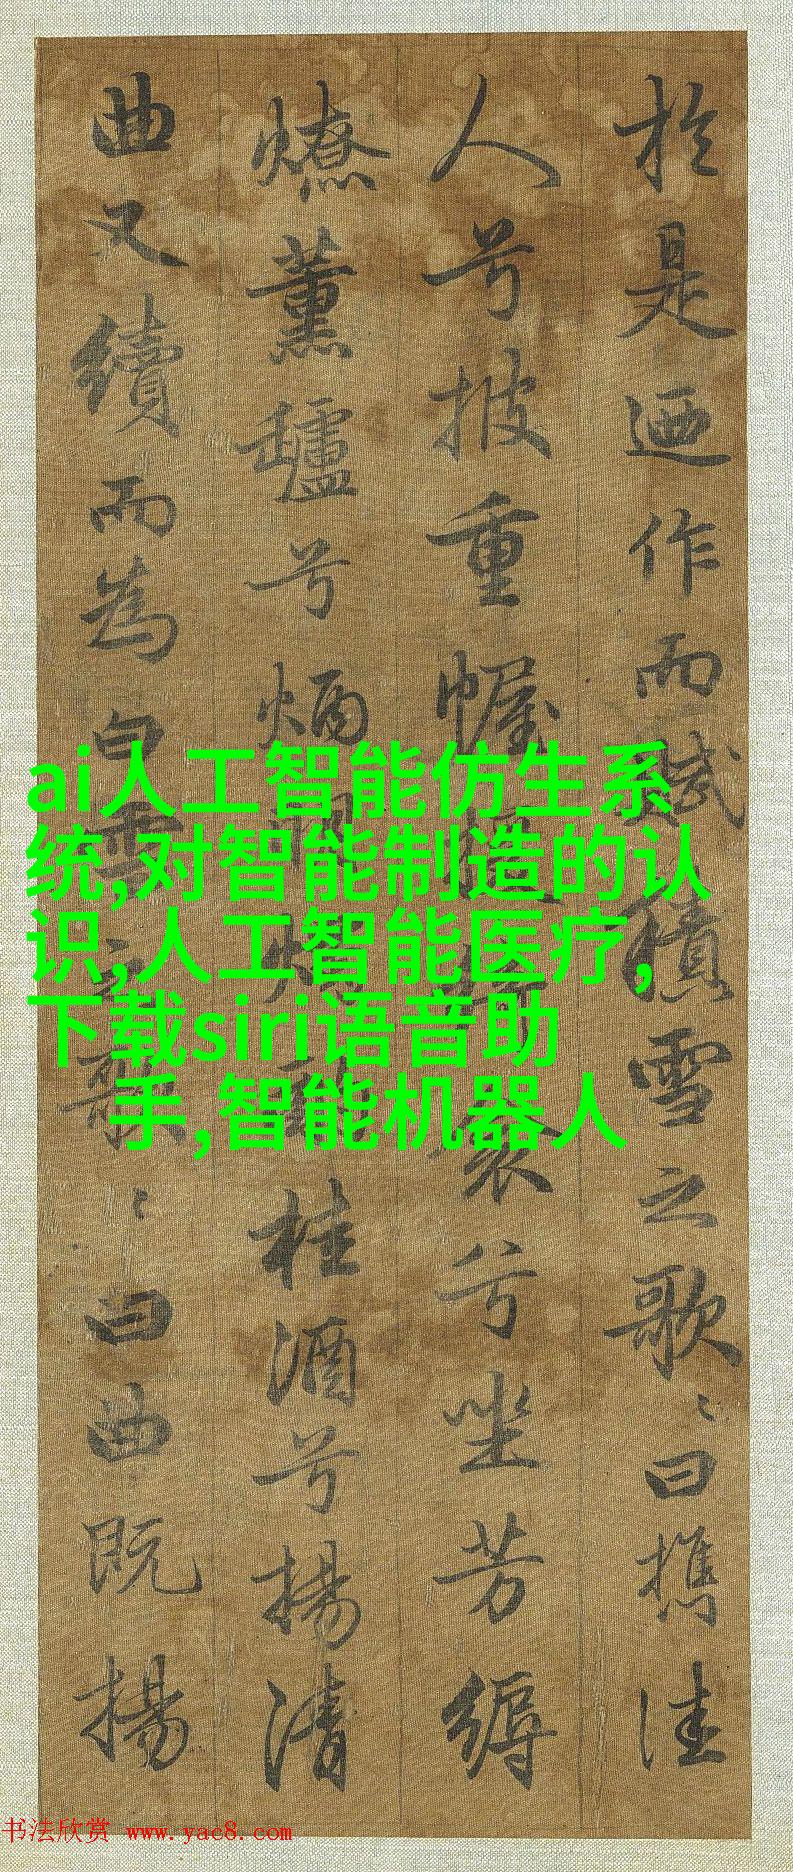 於是迺作而賦積雪之歌〻曰攜佳
人兮披重幄衾兮坐芳縟
燎薰罏兮炳桂酒兮揚清
曲又續而為白雪之歌〻曰曲既揚
ai人工智能仿生系
统,对智能制造的认
识,人工智能医疗,
下载siri语音助
手,智能机器人
书法欣赏 www.yac8.com